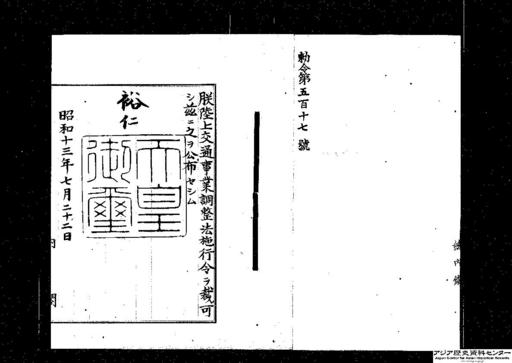 勅令第五百十七號
朕陸上交通事業調整法施行令ヲ裁可
シ茲ニ之ヲ公布セシム
裕仁
天皇御璽
昭和十三年七月二十二日
内閣
アジア歴史資料センター
Japan Center for Asian Historical Records